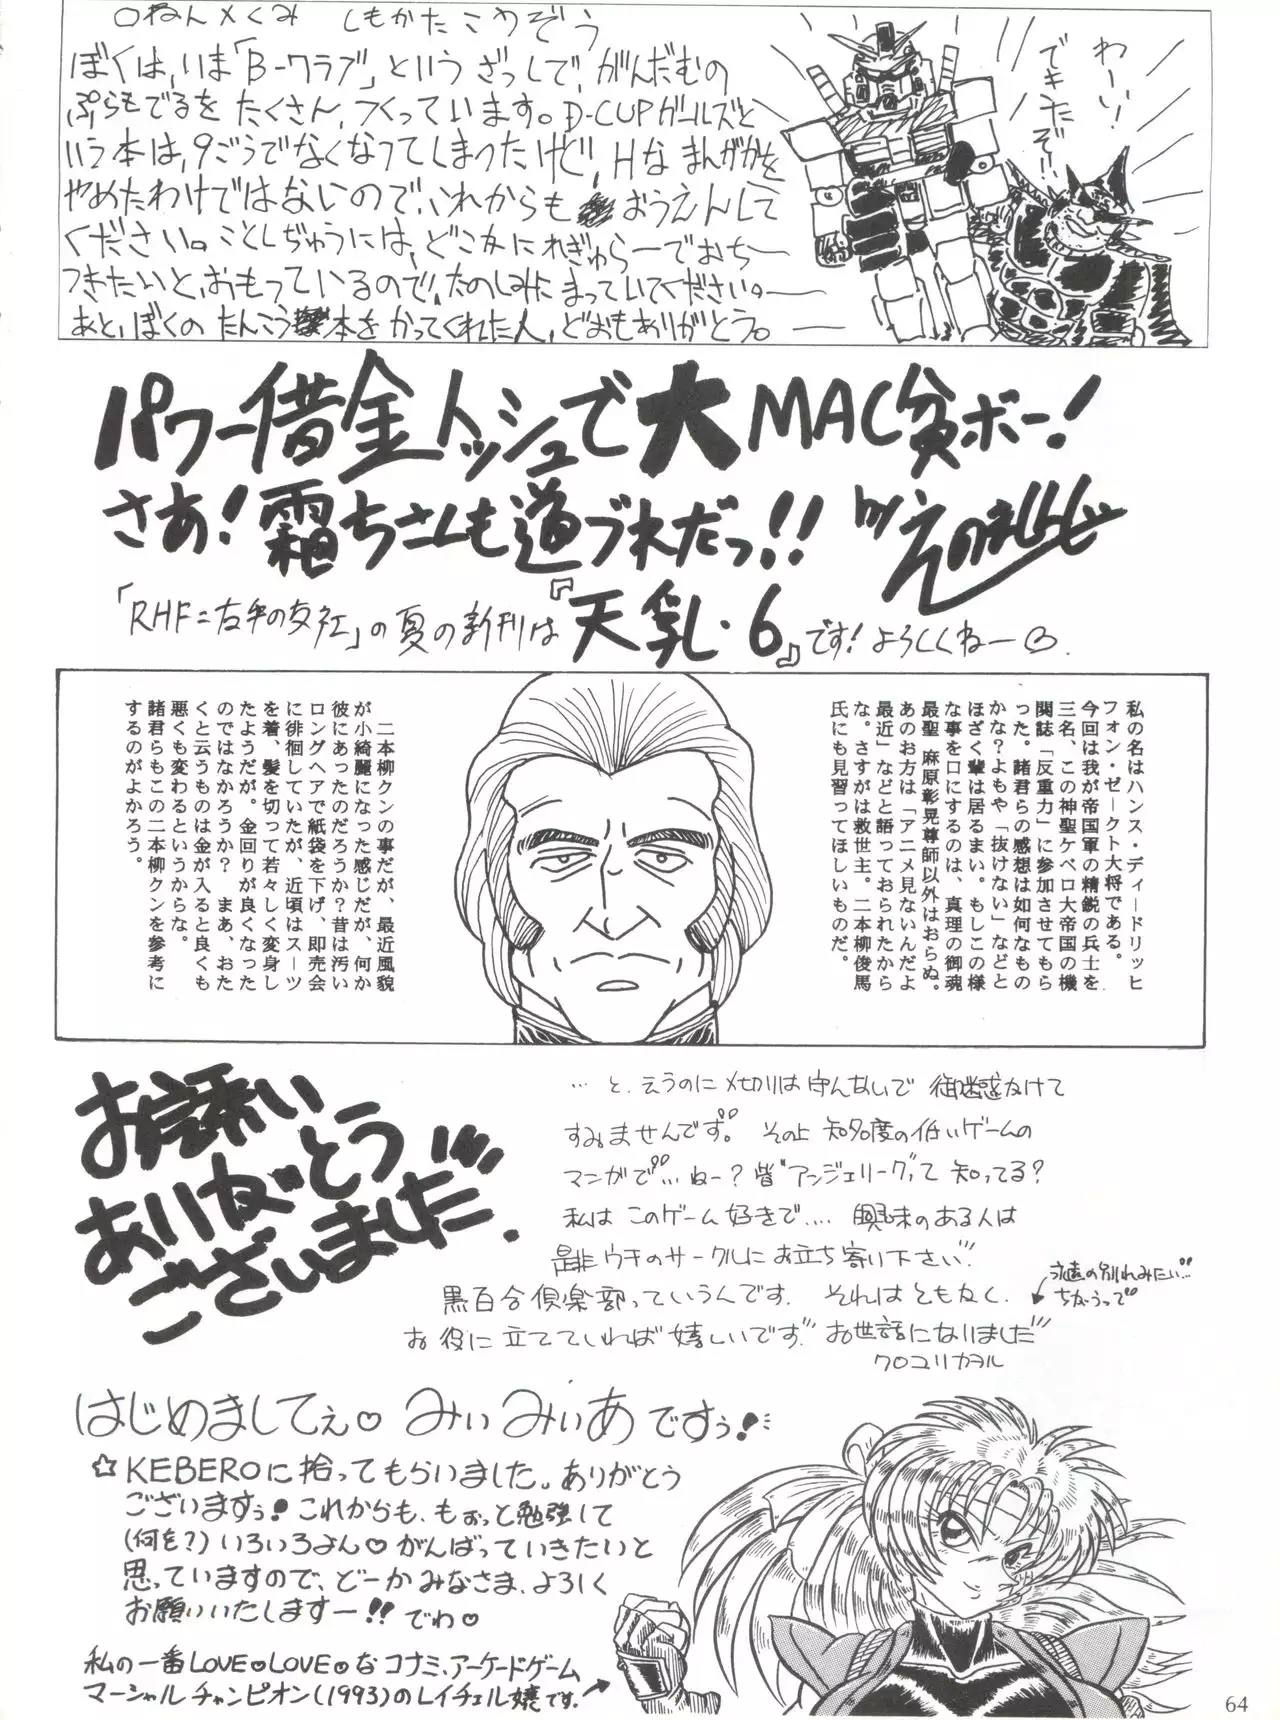 ○ねん×くみ しもかたこうぞう
ぼくは,いま「B-クラブ」というざっしで,がんだむの
ぷらもでるをたくさん,つくっています。D-CUPガールズと
いう本は,9ごうでなくなってしまったけど,Hなまんがかを
やめたわけではないので,これからもおうえんして
ください。ことしぢゅうには,どこかにれぎゅらーでおち
つきたいと,おもっているので,たのしみにまっていてください。
あと,ぼくのたんこう本をかってくれた人,どおもありがとう。
わーい!
できたぞ!!
パワー借金トッシュで大MAC貧ボー!
さあ!霜ちさんも道づれだっ!!
「RHF=右手の友社」の夏の新刊は『天乳・6』です!よろしくねー
私の名はハンス・ディードリッヒ
フォン・ゼークト大将である。
今回は我が帝国軍の精鋭の兵士を
三名、この神聖ケベロ大帝国の機
関誌「反重力」に参加させてもら
った。諸君らの感想は如何なもの
かな?よもや「抜けない」などと
ほざく輩は居るまい。もしこの様
な事を口にするのは、真理の御魂
最聖 麻原彰晃尊師以外はおらぬ。
あのお方は「アニメ見ないんだよ
最近」などと語っておられたから
な。さすがは救世主。二本柳俊馬
氏にも見習ってほしいものだ。
二本柳クンの事だが、最近風貌
が小綺麗になった感じだが、何か
彼にあったのだろうか?昔は汚い
ロングヘアで紙袋を下げ、即売会
に徘徊していたが、近頃はスーツ
を着、髪を切って若々しく変身し
たようだが。金回りが良くなった
のではなかろうか?まあ、おた
くと云うものは金が入ると良くも
悪くも変わるというからな。
諸君らもこの二本柳クンを参考に
するのがよかろう。
お誘い
ありがとう
ございました.
…と、えらそうに〆切りは守んないで御迷惑かけて
すみませんです。その上知名度の低いゲームの
マンガで…ねー?皆"アンジェリーク"って知ってる?
私はこのゲーム好きで…。興味のある人は
是非ウチのサークルにお立ち寄り下さい
黒百合倶楽部っていうんです。それはともかく、
永遠の別れみたい…
ちがうって
お役に立てていれば嬉しいです。お世話になりました
クロユリカヲル
はじめましてぇ♡みぃみぃあですぅ!
☆KEBEROに拾ってもらいました。ありがとう
ございますぅ!これからも、もぉっと勉強して
(何を?)いろいろよん♡がんばっていきたいと
思っていますので、どーかみなさま、よろしく
お願いいたしますー!!でわ♡
私の一番LOVE♡LOVE♡なコナミ、アーケードゲーム
マーシャルチャンピオン(1993)のレイチェル嬢です。
64